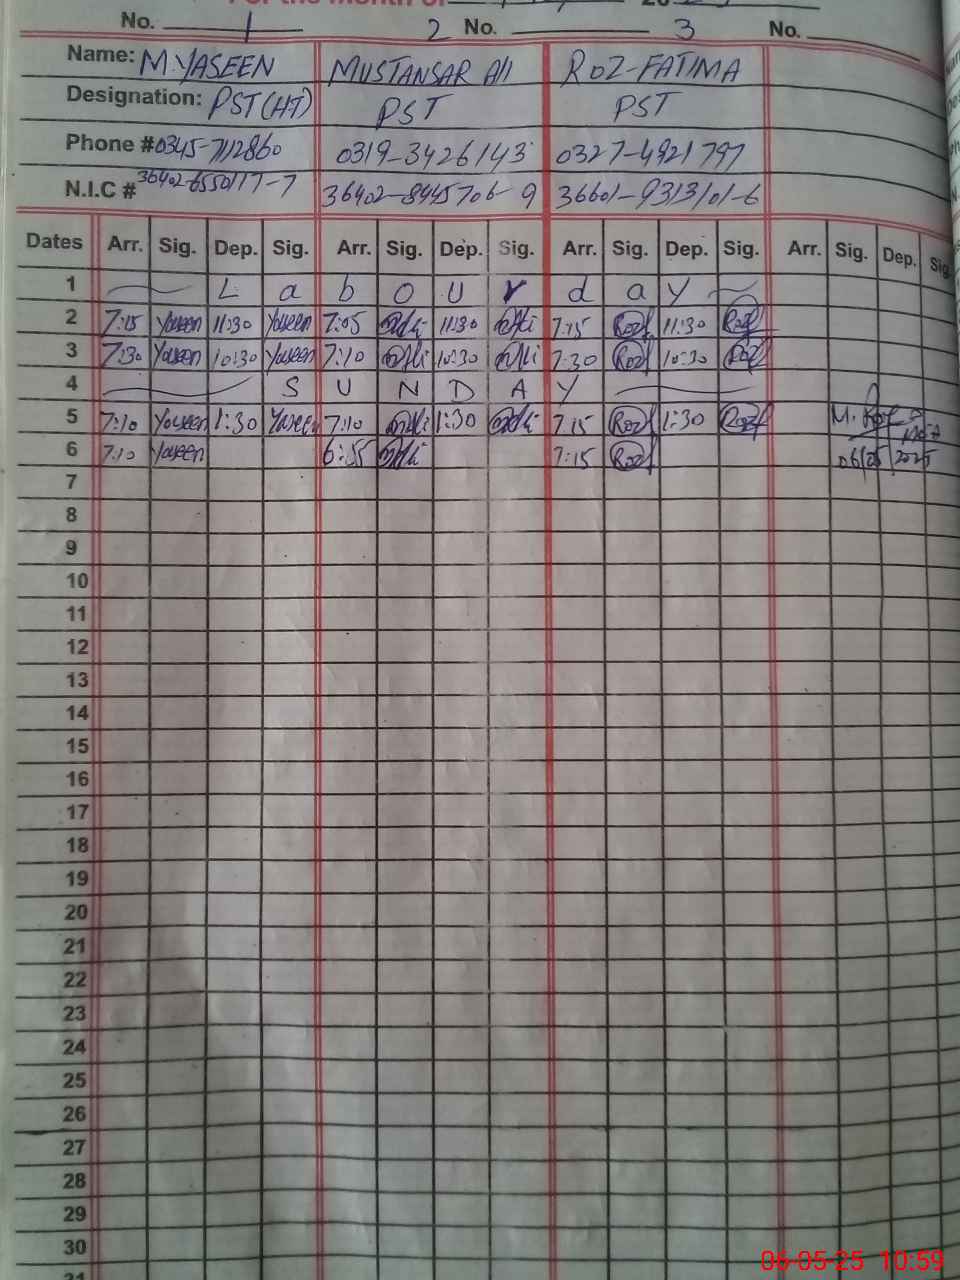 For the month of 20
No. 1 2 No. 3 No.
Name: M.YASEEN MUSTANSAR Ali ROZ-FATIMA
Designation: PST(HT) PST PST
Phone #0345-7112860 0319-3426143 0327-4921797
N.I.C # 36402-6550117-7 36402-8445706-9 36601-9313101-6
Dates Arr. Sig. Dep. Sig. Arr. Sig. Dep. Sig. Arr. Sig. Dep. Sig. Arr. Sig. Dep. Sig
1 L a b o u r d a y
2 7:15 Yaseen 11:30 Yaseen 7:05 Ali 11:30 Ali 7:15 Roz 11:30 Roz
3 7:30 Yaseen 10:30 Yaseen 7:10 Ali 10:30 Ali 7:30 Roz 10:30 Roz
4 S U N D A Y
5 7:10 Yaseen 1:30 Yaseen 7:10 Ali 1:30 Ali 7:15 Roz 1:30 Roz M.
6 7:10 Yaseen 6:55 Ali 7:15 Roz 06/05/2025
7
8
9
10
11
12
13
14
15
16
17
18
19
20
21
22
23
24
25
26
27
28
29
30
31
06-05-25 10:59